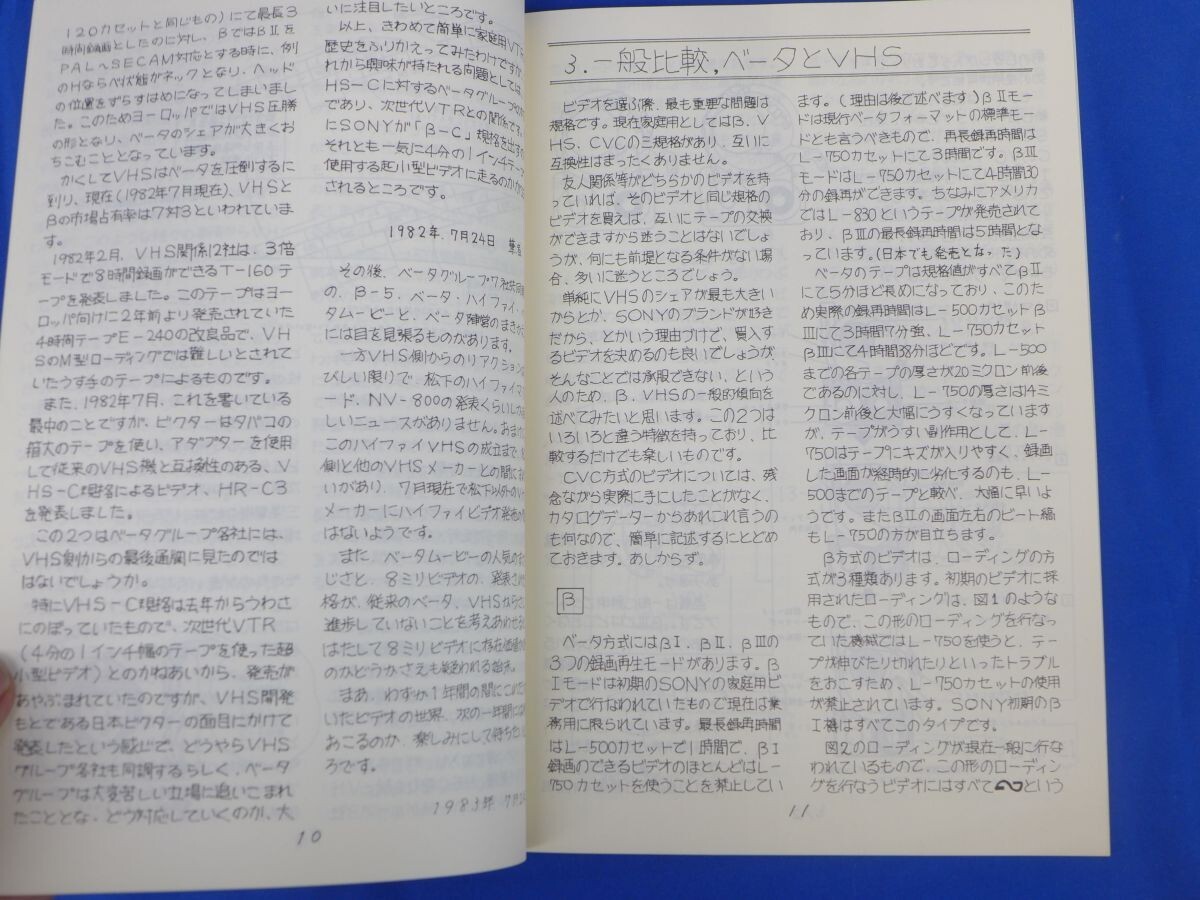 120カセットと同じもの)にて最長3
時間録画としたのに対し、βではβⅡを
PAL〜SECAM対応とする時に、例
のHならべ状態がネックとなり、ヘッド
の位置をずらすはめになってしまいまし
た。このためヨーロッパではVHS圧勝
の形となり、ベータのシェアが大きくお
ちこむこととなっています。
かくしてVHSはベータを圧倒するに
到り、現在(1982年7月現在)、VHSと
βの市場占有率は7対3といわれていま
す。
1982年2月、VHS関係12社は、3倍
モードで8時間録画ができるT-160テ
ープを発表しました。このテープはヨー
ロッパ向けに2年前より発売されていた
4時間テープE-240の改良品で、VH
SのM型ローディングでは難しいとされて
いたうす手のテープによるものです。
また、1982年7月、これを書いている
最中のことですが、ビクターはタバコの
箱大のテープを使い、アダプターを使用
して従来のVHS機と互換性のある、V
HS-C規格によるビデオ、HR-C3
を発表しました。
この2つはベータグループ各社には、
VHS側からの最後通牒に見たのでは
はないでしょうか。
特にVHS-C規格は去年からうわさ
にのぼっていたもので、次世代VTR
(4分の1インチ幅のテープを使った超
小型ビデオ)とのかねあいから、発売が
あやぶまれていたのですが、VHS開発
もとである日本ビクターの面目にかけて
発表したという感じで、どうやらVHS
グループ各社も同調するらしく、ベータ
グループは大変苦しい立場に追いこまれ
たこととな、どう対応していくのか、大
いに注目したいところです。
以上、きわめて簡単に家庭用VTR
歴史をふりかえってみたわけですが
れから興味が持たれる問題としては
HS-Cに対するベータグループの
であり、次世代VTRとの関係です
にSONYが「β-C」規格を出すの
それとも一気に4分の1インチテー
使用する超小型ビデオに走るのかが
されるところです。
1982年.7月24日
その後、ベータグループ7社共同
の、β-5、ベータ・ハイファイ、
タムービーと、ベータ陣営のまきか
には目を見張るものがあります。
一方VHS側からのリアクション
びしい限りで、松下のハイファイマ
ード、NV-800の発表くらいし
しいニュースがありません。おま
このハイファイVHSの成立まで、
側と他のVHSメーカーとの間に
いがあり、7月現在で松下以外の
メーカーにハイファイビデオ発売の
はないようです。
また、ベータムービーの人気の
じさと、8ミリビデオの、発表され
格が、従来のベータ、VHSから
進歩していないことを考えあわせ
はたして8ミリビデオに存在価値が
のかどうかさえも疑われる始末。
まあ、わずか1年間の間にこれだ
いたビデオの世界、次の一年間には
おこるのか、楽しみにして待ち
ろです。
1983年 7月
10
3.一般比較,ベータとVHS
ビデオを選ぶ際、最も重要な問題は
規格です。現在家庭用としてはβ、V
HS、CVCの三規格があり、互いに
互換性はまったくありません。
友人関係等がどちらかのビデオを持
っていれば、そのビデオと同じ規格の
ビデオを買えば、互いにテープの交換
ができますから迷うことはないでしょ
うが、何にも前提となる条件がない場
合、多いに迷うところでしょう。
単純にVHSのシェアが最も大きい
からとか、SONYのブランドが好き
だから、とかいう理由づけで、買入す
るビデオを決めるのも良いでしょうが
そんなことでは承服できない、という
人のため、β、VHSの一般的傾向を
述べてみたいと思います。この2つは
いろいろと違う特徴を持っており、比
較するだけでも楽しいものです。
CVC方式のビデオについては、残
念ながら実際に手にしたことがなく、
カタログデーターからあれこれ言うの
も何なので、簡単に記述するにとどめ
ておきます。あしからず。
β
ベータ方式にはβⅠ、βⅡ、βⅢの
3つの録画再生モードがあります。β
Ⅰモードは初期のSONYの家庭用ビ
デオで行なわれていたもので現在は業
務用に限られています。最長録再時間
はL-500カセットで1時間で、βⅠ
録画のできるビデオのほとんどはL-
750カセットを使うことを禁止してい
ます。(理由は後で述べます)βⅡモー
ドは現行ベータフォーマットの標準モー
ドとも言うべきもので、再長録再時間は
L-750カセットにて3時間です。βⅢ
モードはL-750カセットにて4時間30
分の録再ができます。ちなみにアメリカ
ではL-830というテープが発売されて
おり、βⅢの最長録再時間は5時間とな
っています。(日本でも発売となった)
ベータのテープは規格値がすべてβⅡ
にて5分ほど長めになっており、このた
め実際の録再時間はL-500カセットβ
Ⅲにて3時間7分強、L-750カセット
βⅢにて4時間38分ほどです。L-500
までの各テープの厚さが20ミクロン前後
であるのに対し、L-750の厚さは14ミ
クロン前後と大幅にうすくなっています
が、テープがうすい副作用として、L-
750はテープにキズが入りやすく、録画
した画面が経時的に劣化するのも、L-
500までのテープと較べ、大幅に早いよ
うです。またβⅡの画面左右のビート縞
もL-750の方が目立ちます。
β方式のビデオは、ローディングの方
式が3種類あります。初期のビデオに採
用されたローディングは、図1のような
もので、この形のローディングを行なっ
ていた機械ではL-750を使うと、テー
プが伸びたり切れたりといったトラブル
をおこすため、L-750カセットの使用
が禁止されています。SONY初期のβ
Ⅰ機はすべてこのタイプです。
図2のローディングが現在一般に行な
われているもので、この形のローディン
グを行なうビデオにはすべて という
11